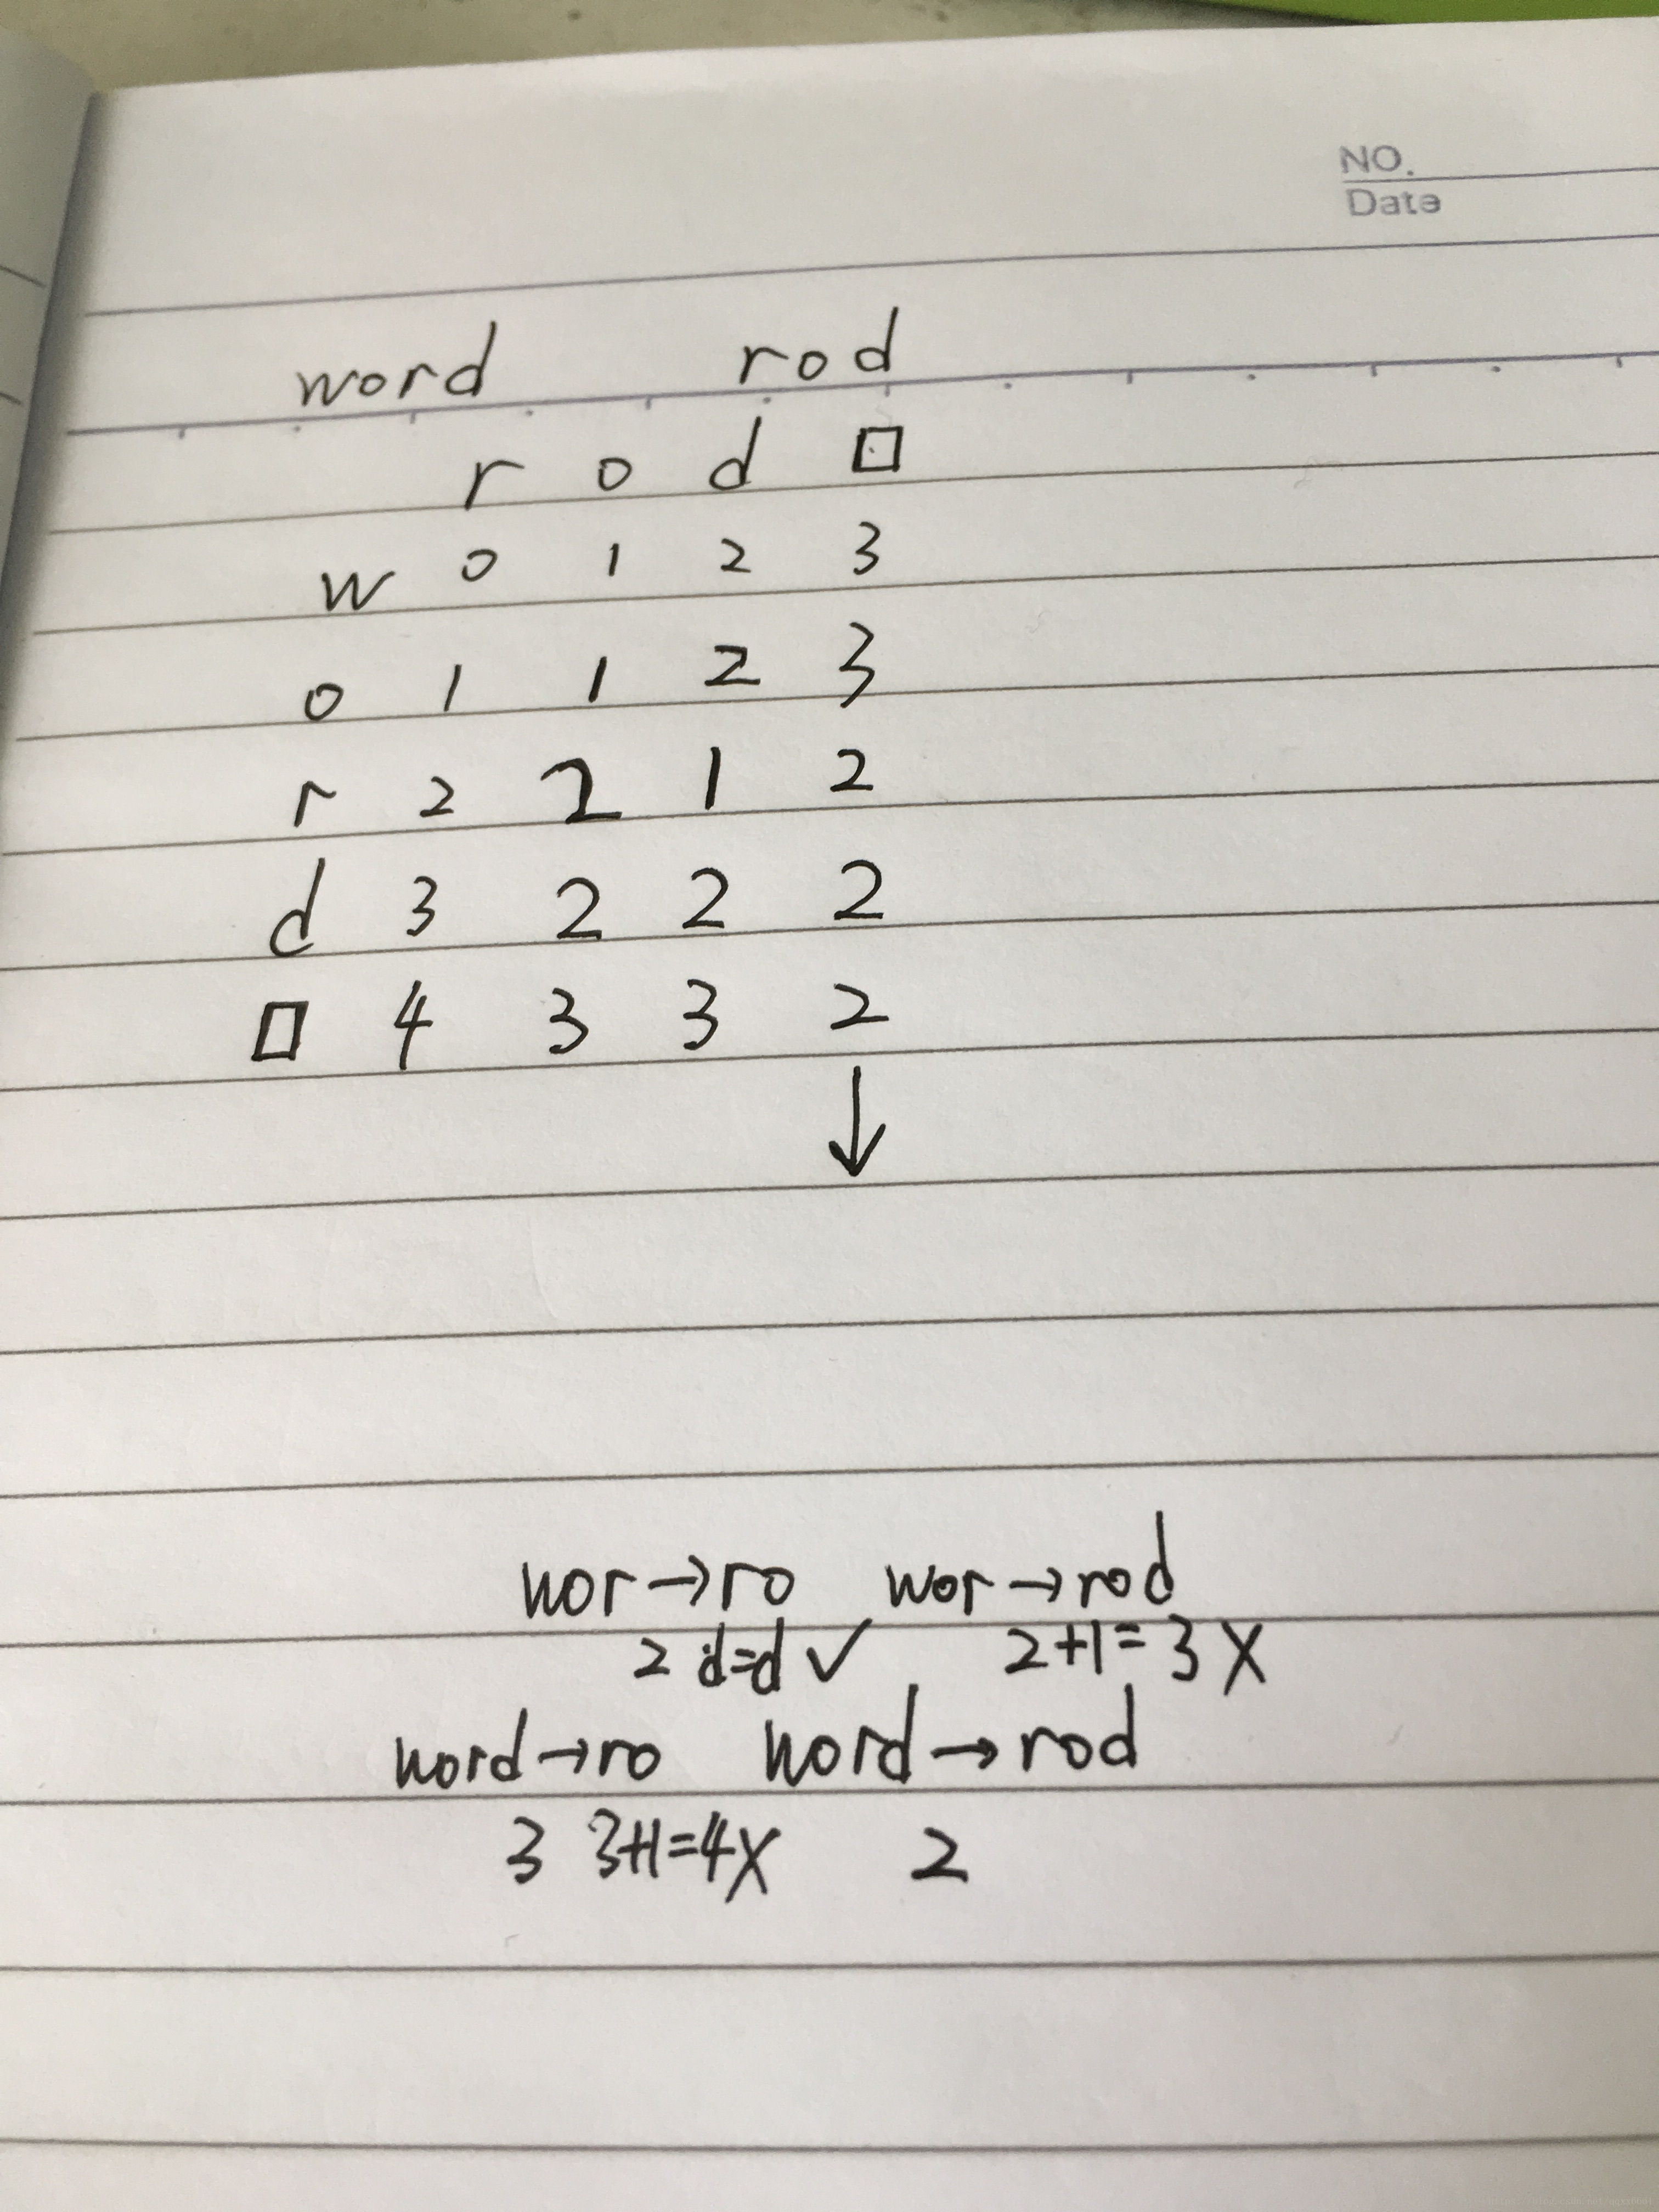 NO.
Date
word rod
r o d □
w 0 1 2 3
o 1 1 2 3
r 2 2 1 2
d 3 2 2 2
□ 4 3 3 2
↓
wor→ro wor→rod
2 d=d ✓ 2+1=3 X
word→ro word→rod
3 3+1=4 X 2